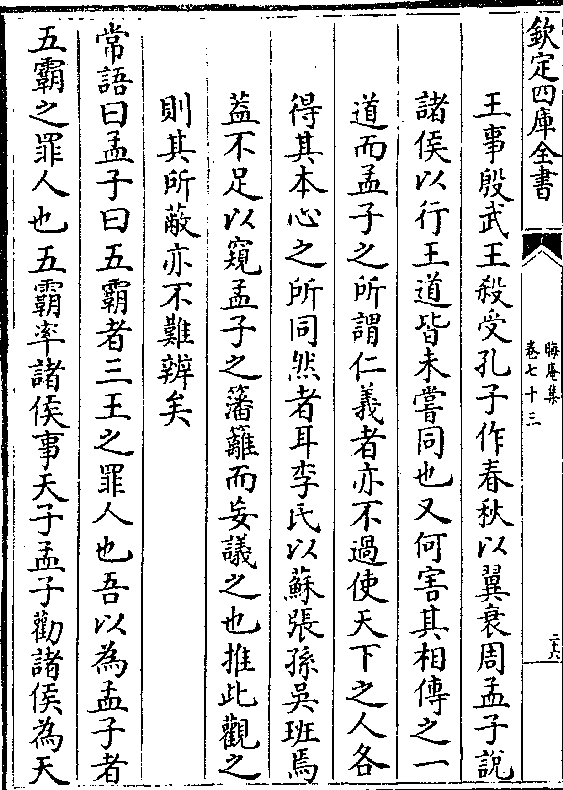 欽定四庫全書
晦庵集
卷七十三
二六
王事殷武王殺受孔子作春秋以翼衰周孟子說
諸侯以行王道皆未嘗同也又何害其相傳之一
道而孟子之所謂仁義者亦不過使天下之人各
得其本心之所同然者耳李氏以蘇張孫吳班焉
葢不足以窺孟子之籓籬而妄議之也推此觀之
則其所蔽亦不難辨矣
常語曰孟子曰五霸者三王之罪人也吾以為孟子者
五霸之罪人也五霸率諸侯事天子孟子勸諸侯為天